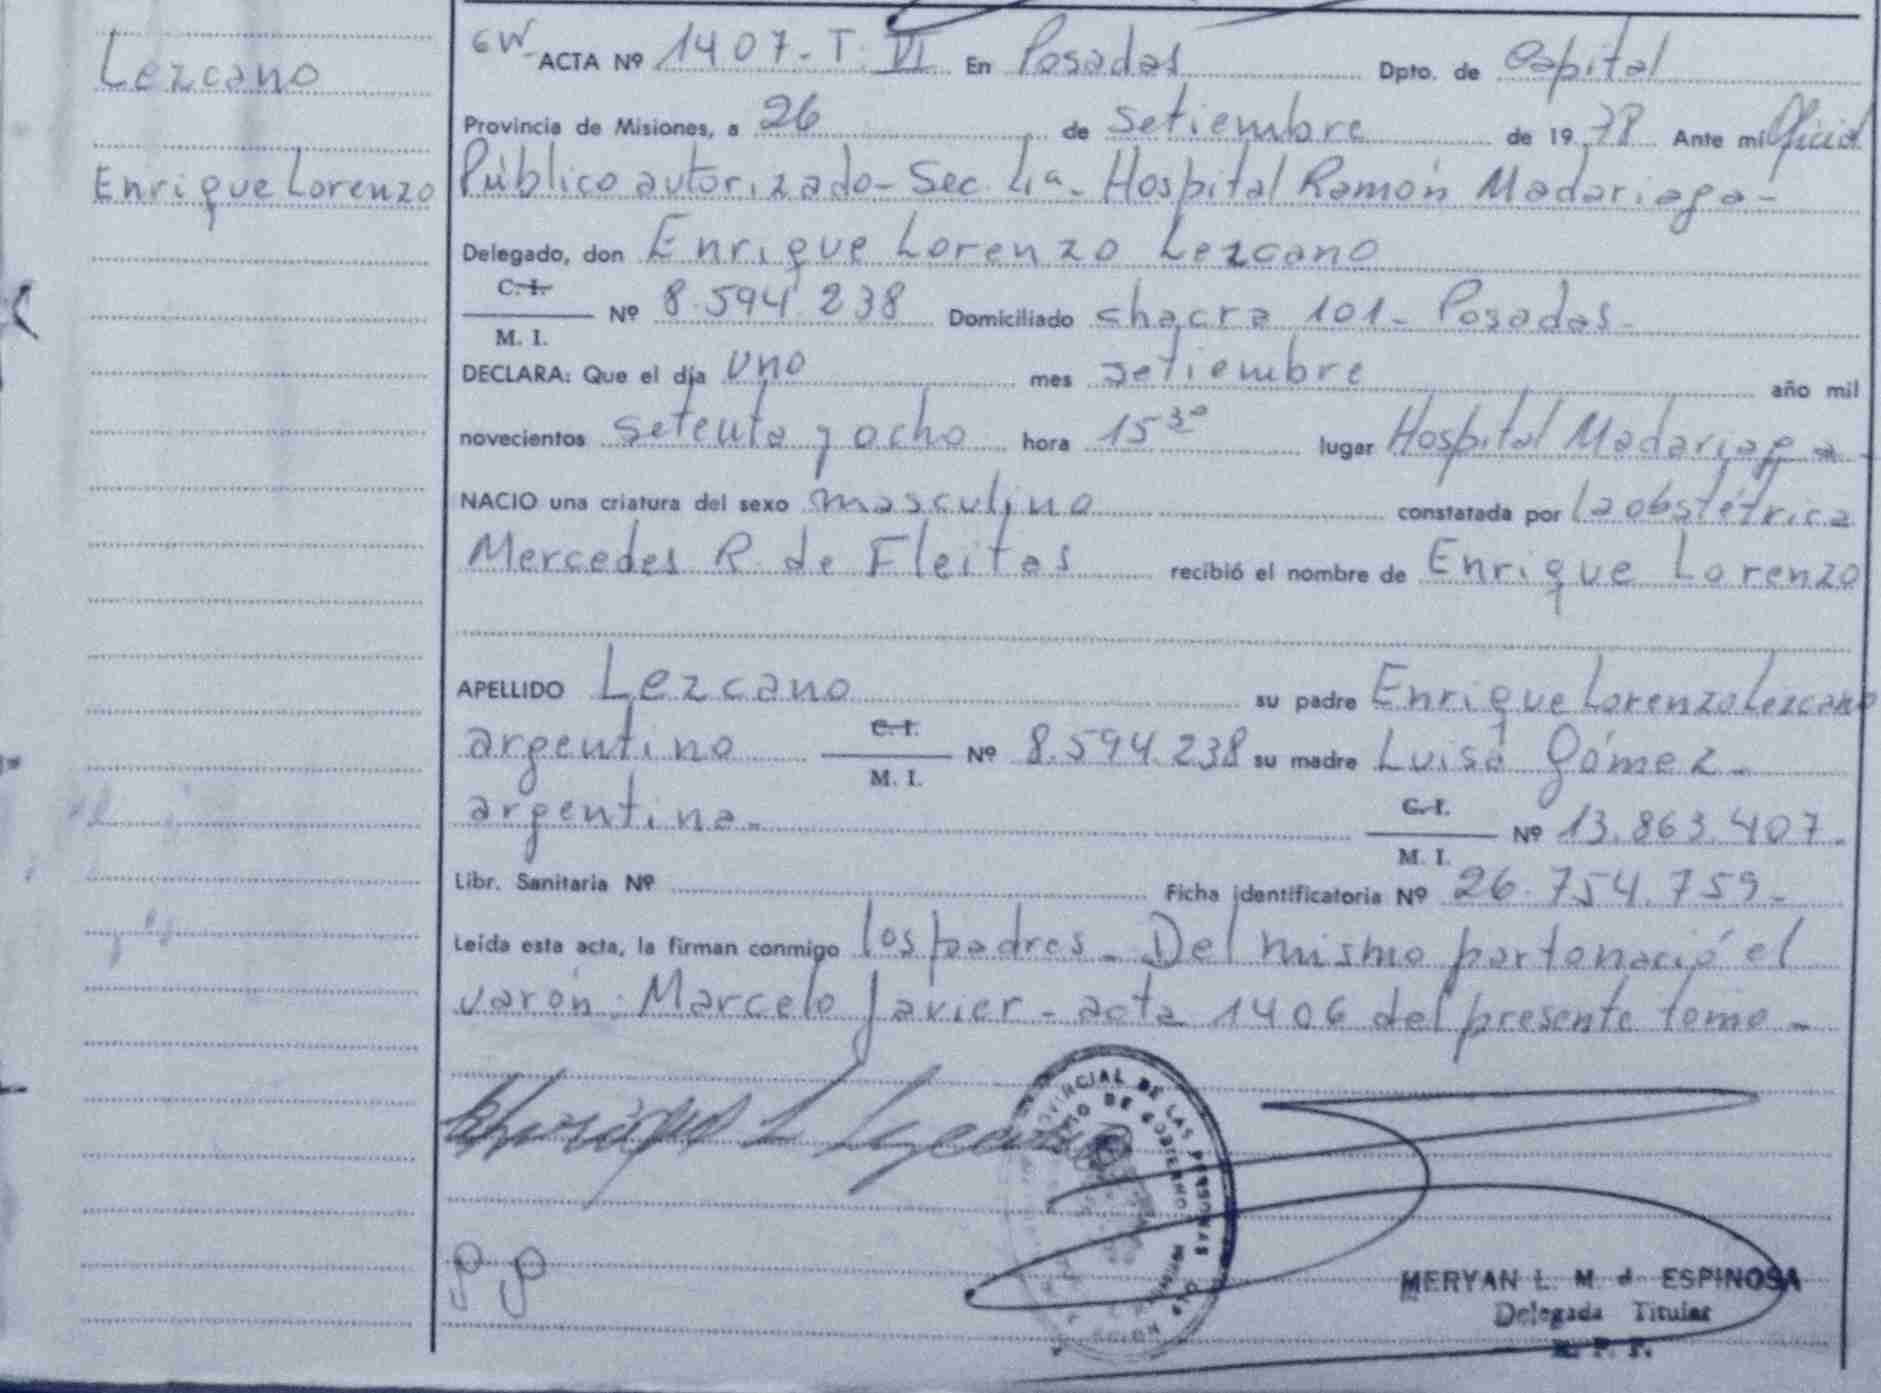 Lezcano
Enrique Lorenzo
6W ACTA Nº 1407 - T. VI En Posadas Dpto. de Capital
Provincia de Misiones, a 26 de setiembre de 19 78 Ante mí Oficial
Público autorizado - Sec. 4a - Hospital Ramón Madariaga -
Delegado, don Enrique Lorenzo Lezcano
C. I.
M. I. Nº 8.594.238 Domiciliado chacra 101 - Posadas -
DECLARA: Que el día uno mes setiembre año mil
novecientos setenta y ocho hora 15 30 lugar Hospital Madariaga -
NACIO una criatura del sexo masculino constatada por la obstétrica
Mercedes R. de Fleitas recibió el nombre de Enrique Lorenzo
APELLIDO Lezcano su padre Enrique Lorenzo Lezcano
argentino C. I. M. I. Nº 8.594.238 su madre Luisa Gómez -
argentina - C. I. M. I. Nº 13.863.407 -
Libr. Sanitaria Nº Ficha identificatoria Nº 26.754.759 -
Leída esta acta, la firman conmigo los padres - Del mismo parto nació el
varón: Marcelo Javier - acta 1406 del presente tomo -
PROVINCIAL DE LAS PERSONAS
DE GOBIERNO
MERYAN L. M. d ESPINOSA
Delegada Titular
R. P. P.